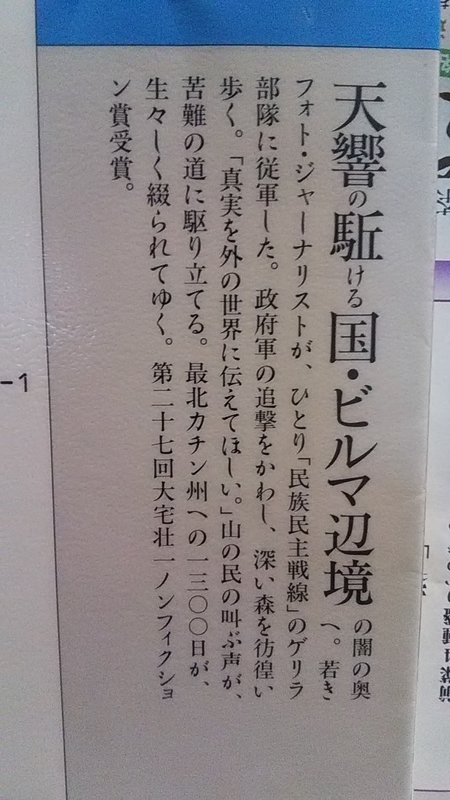 天響の駈ける国・ビルマ辺境の闇の奥
へ。若き
フォト・ジャーナリストが、ひとり「民族民主戦線」のゲリラ
部隊に従軍した。政府軍の追撃をかわし、深い森を彷徨い
歩く。「真実を外の世界に伝えてほしい。」山の民の叫ぶ声が、
苦難の道に駆り立てる。最北カチン州への一三〇〇日が、
生々しく綴られてゆく。第二十七回大宅壮一ノンフィクショ
ン賞受賞。
-1